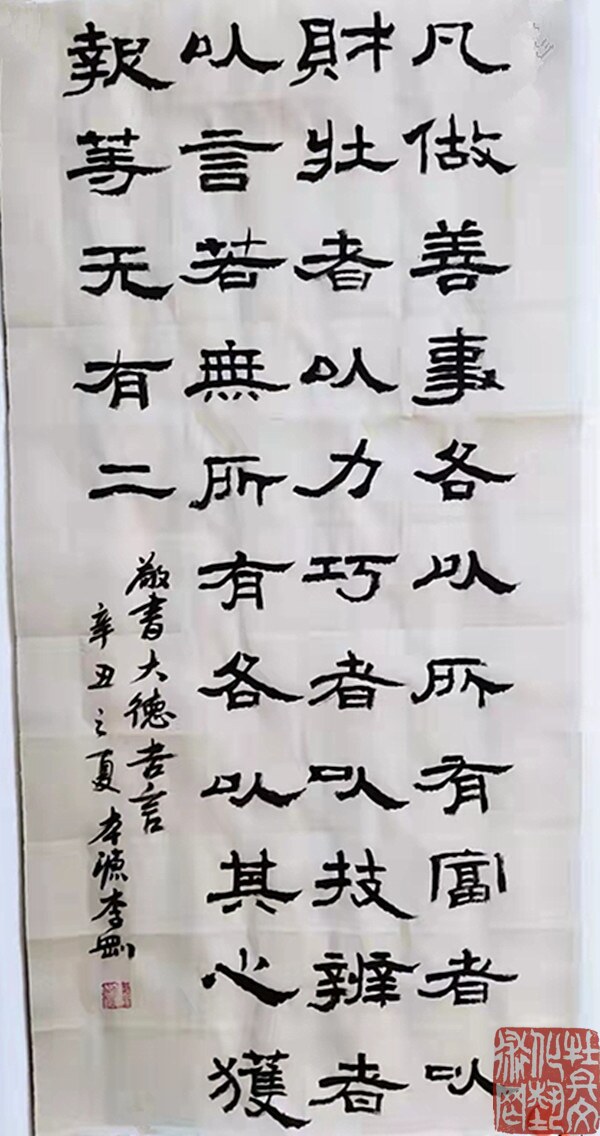 凡做善事各以所有富者以
財壮者以力巧者以技辦者
以言若無所有各以其心獲
報等无有二
敬書大德吉言
辛丑之夏 本源李剛